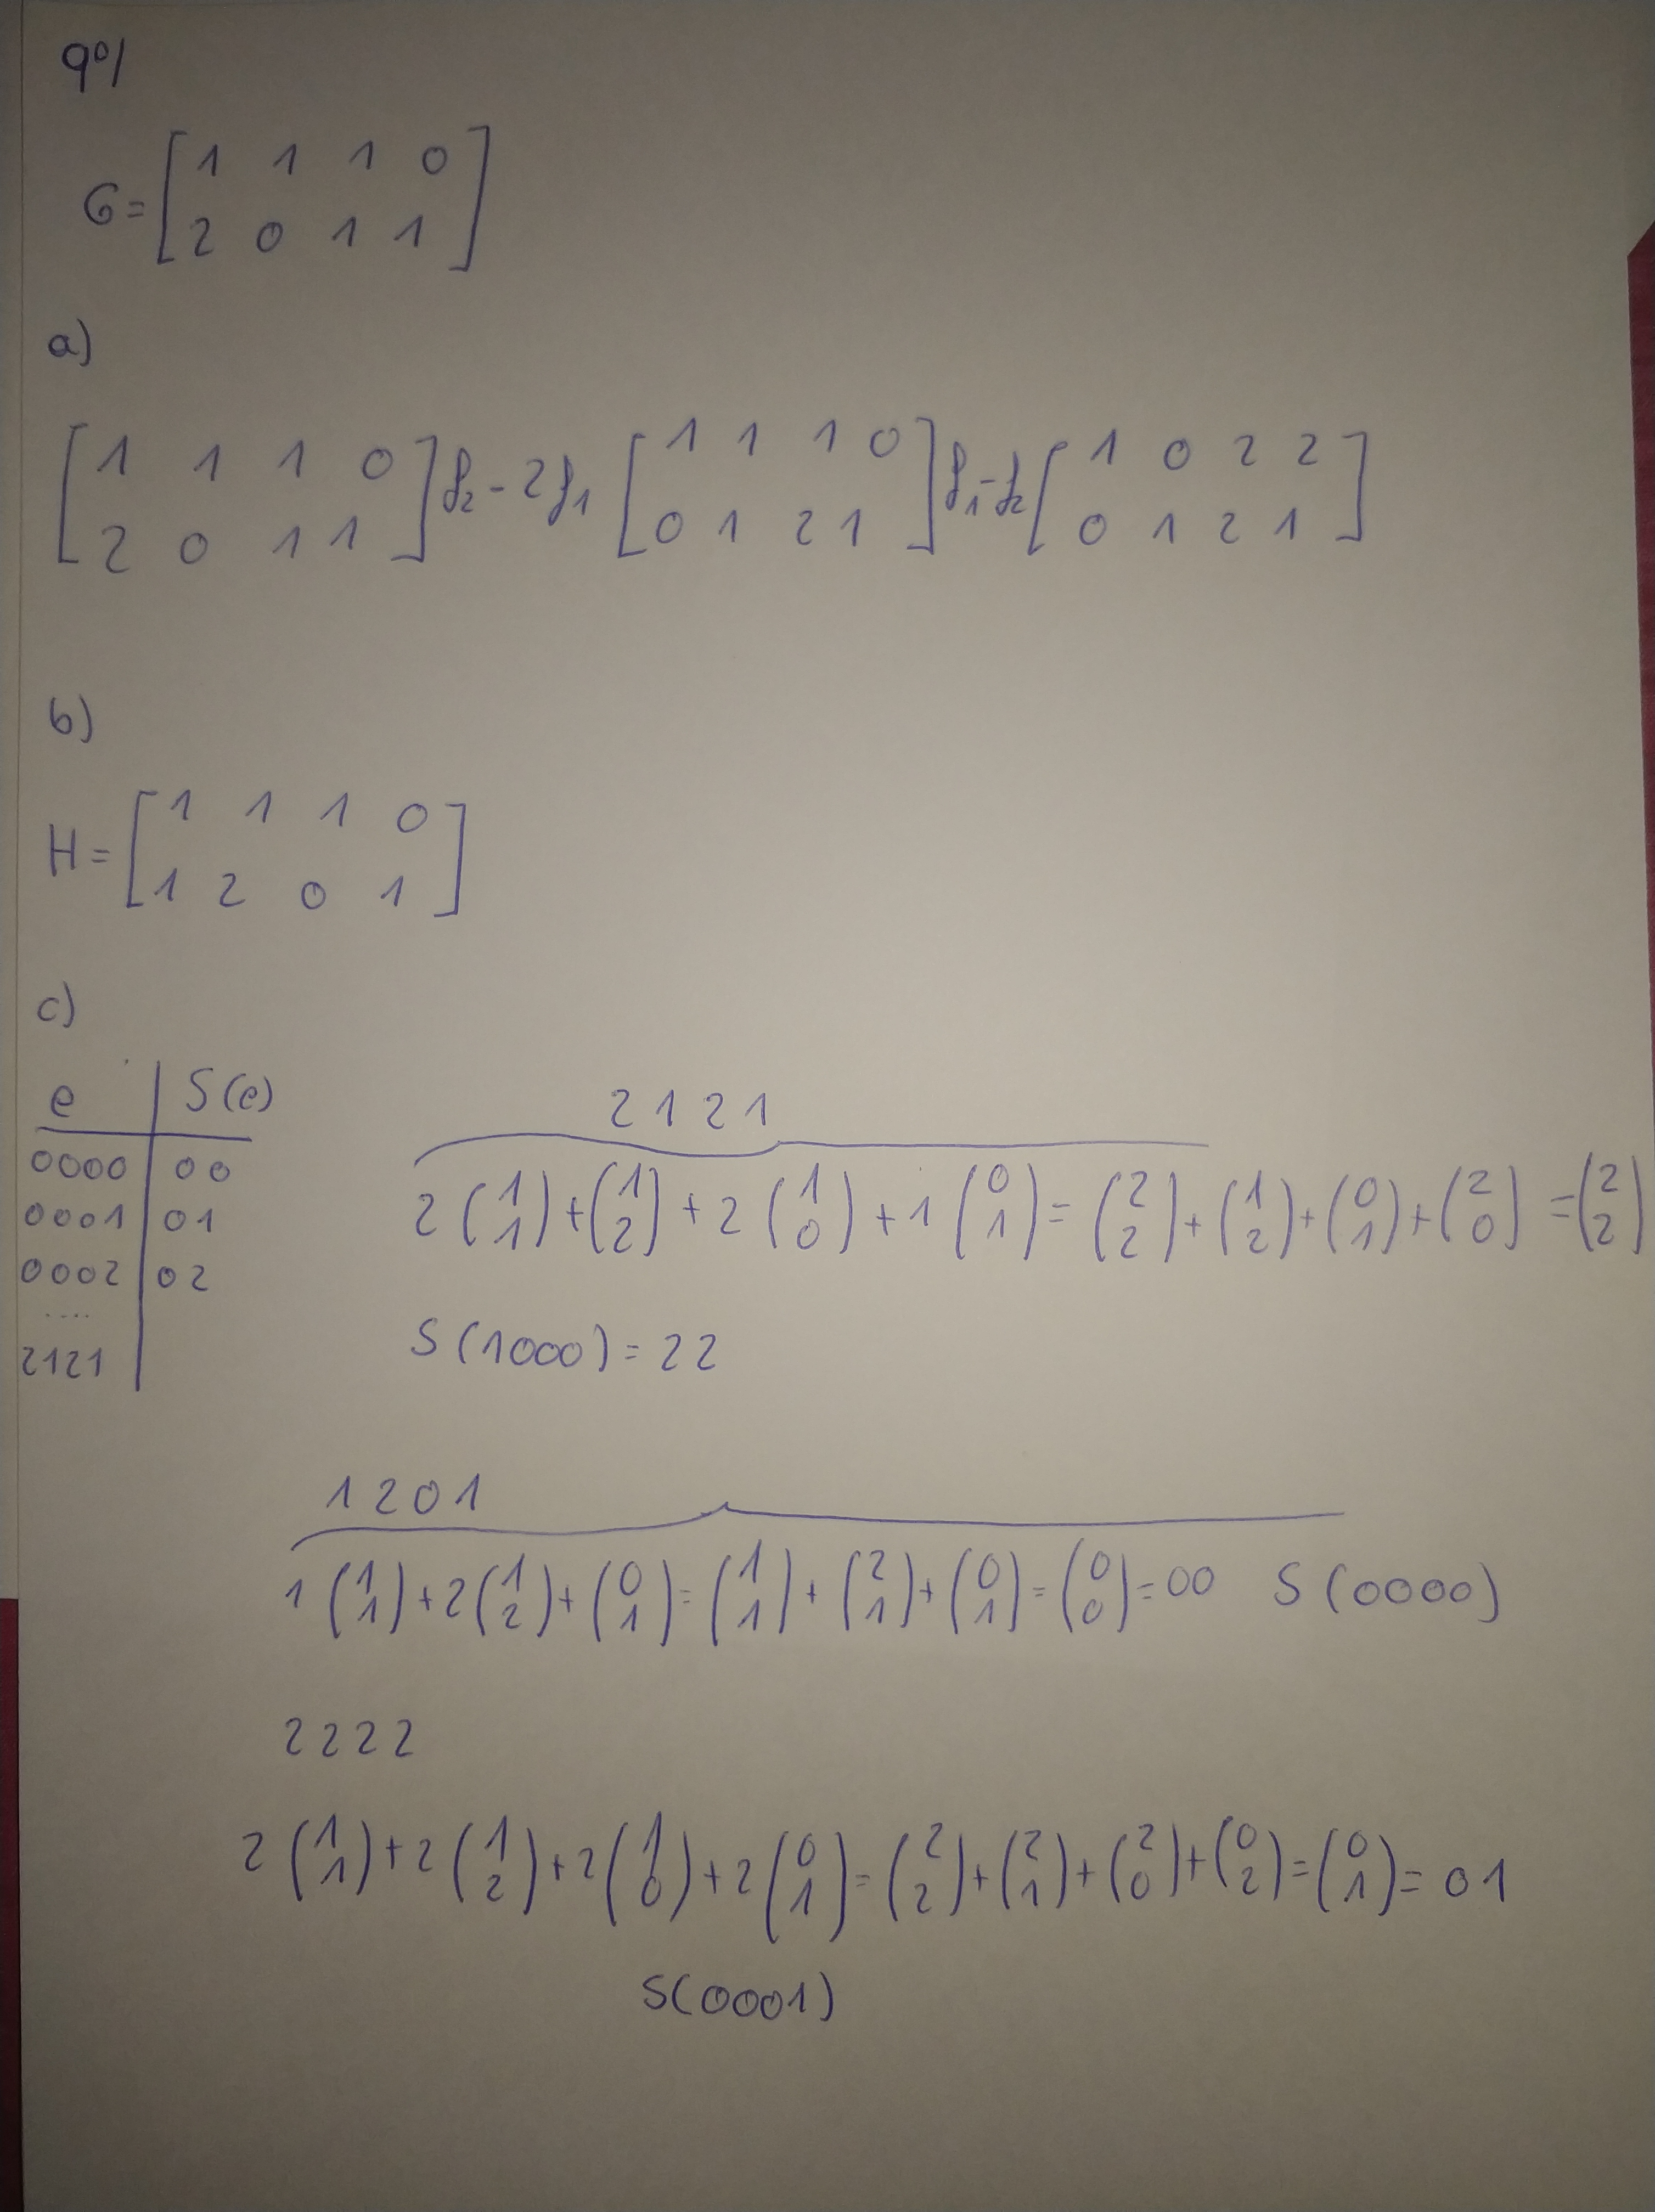 9º/
G = [ 1 1 1 0
2 0 1 1 ]
a)
[ 1 1 1 0
2 0 1 1 ] f₂ - 2f₁ [ 1 1 1 0
0 1 2 1 ] f₁ - f₂ [ 1 0 2 2
0 1 2 1 ]
b)
H = [ 1 1 1 0
1 2 0 1 ]
c)
e | S(e)
0000 | 00
0001 | 01
0002 | 02
....
2121
2121
2 (1 1) + (1 2) + 2 (1 0) + 1 (0 1) = (2 2) + (1 2) + (0 1) + (2 0) = (2 2)
S(1000) = 22
1201
1 (1 1) + 2 (1 2) + (0 1) = (1 1) + (2 1) + (0 1) = (0 0) = 00 S(0000)
2222
2 (1 1) + 2 (1 2) + 2 (1 0) + 2 (0 1) = (2 2) + (2 1) + (2 0) + (0 2) = (0 1) = 01
S(0001)